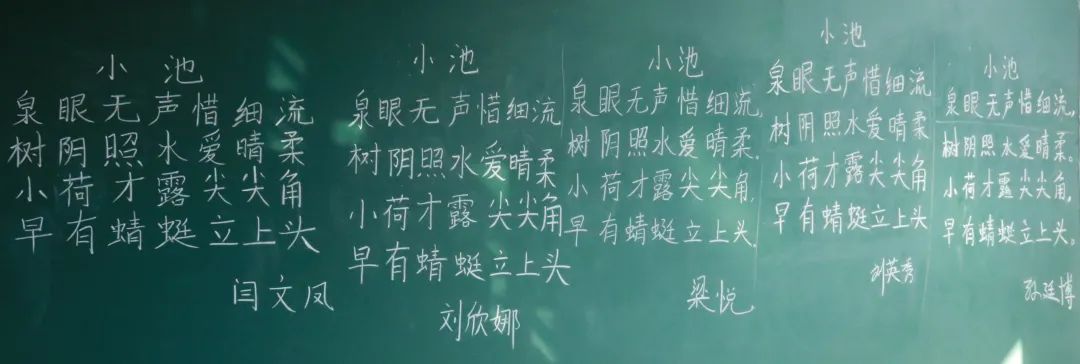 小池
泉眼无声惜细流
树阴照水爱晴柔
小荷才露尖尖角
早有蜻蜓立上头
闫文凤
小池
泉眼无声惜细流
树阴照水爱晴柔
小荷才露尖尖角
早有蜻蜓立上头
刘欣娜
小池
泉眼无声惜细流,
树阴照水爱晴柔.
小荷才露尖尖角,
早有蜻蜓立上头.
梁悦
小池
泉眼无声惜细流
树阴照水爱晴柔
小荷才露尖尖角
早有蜻蜓立上头
刘英秀
小池
泉眼无声惜细流,
树阴照水爱晴柔。
小荷才露尖尖角,
早有蜻蜓立上头。
孙廷博